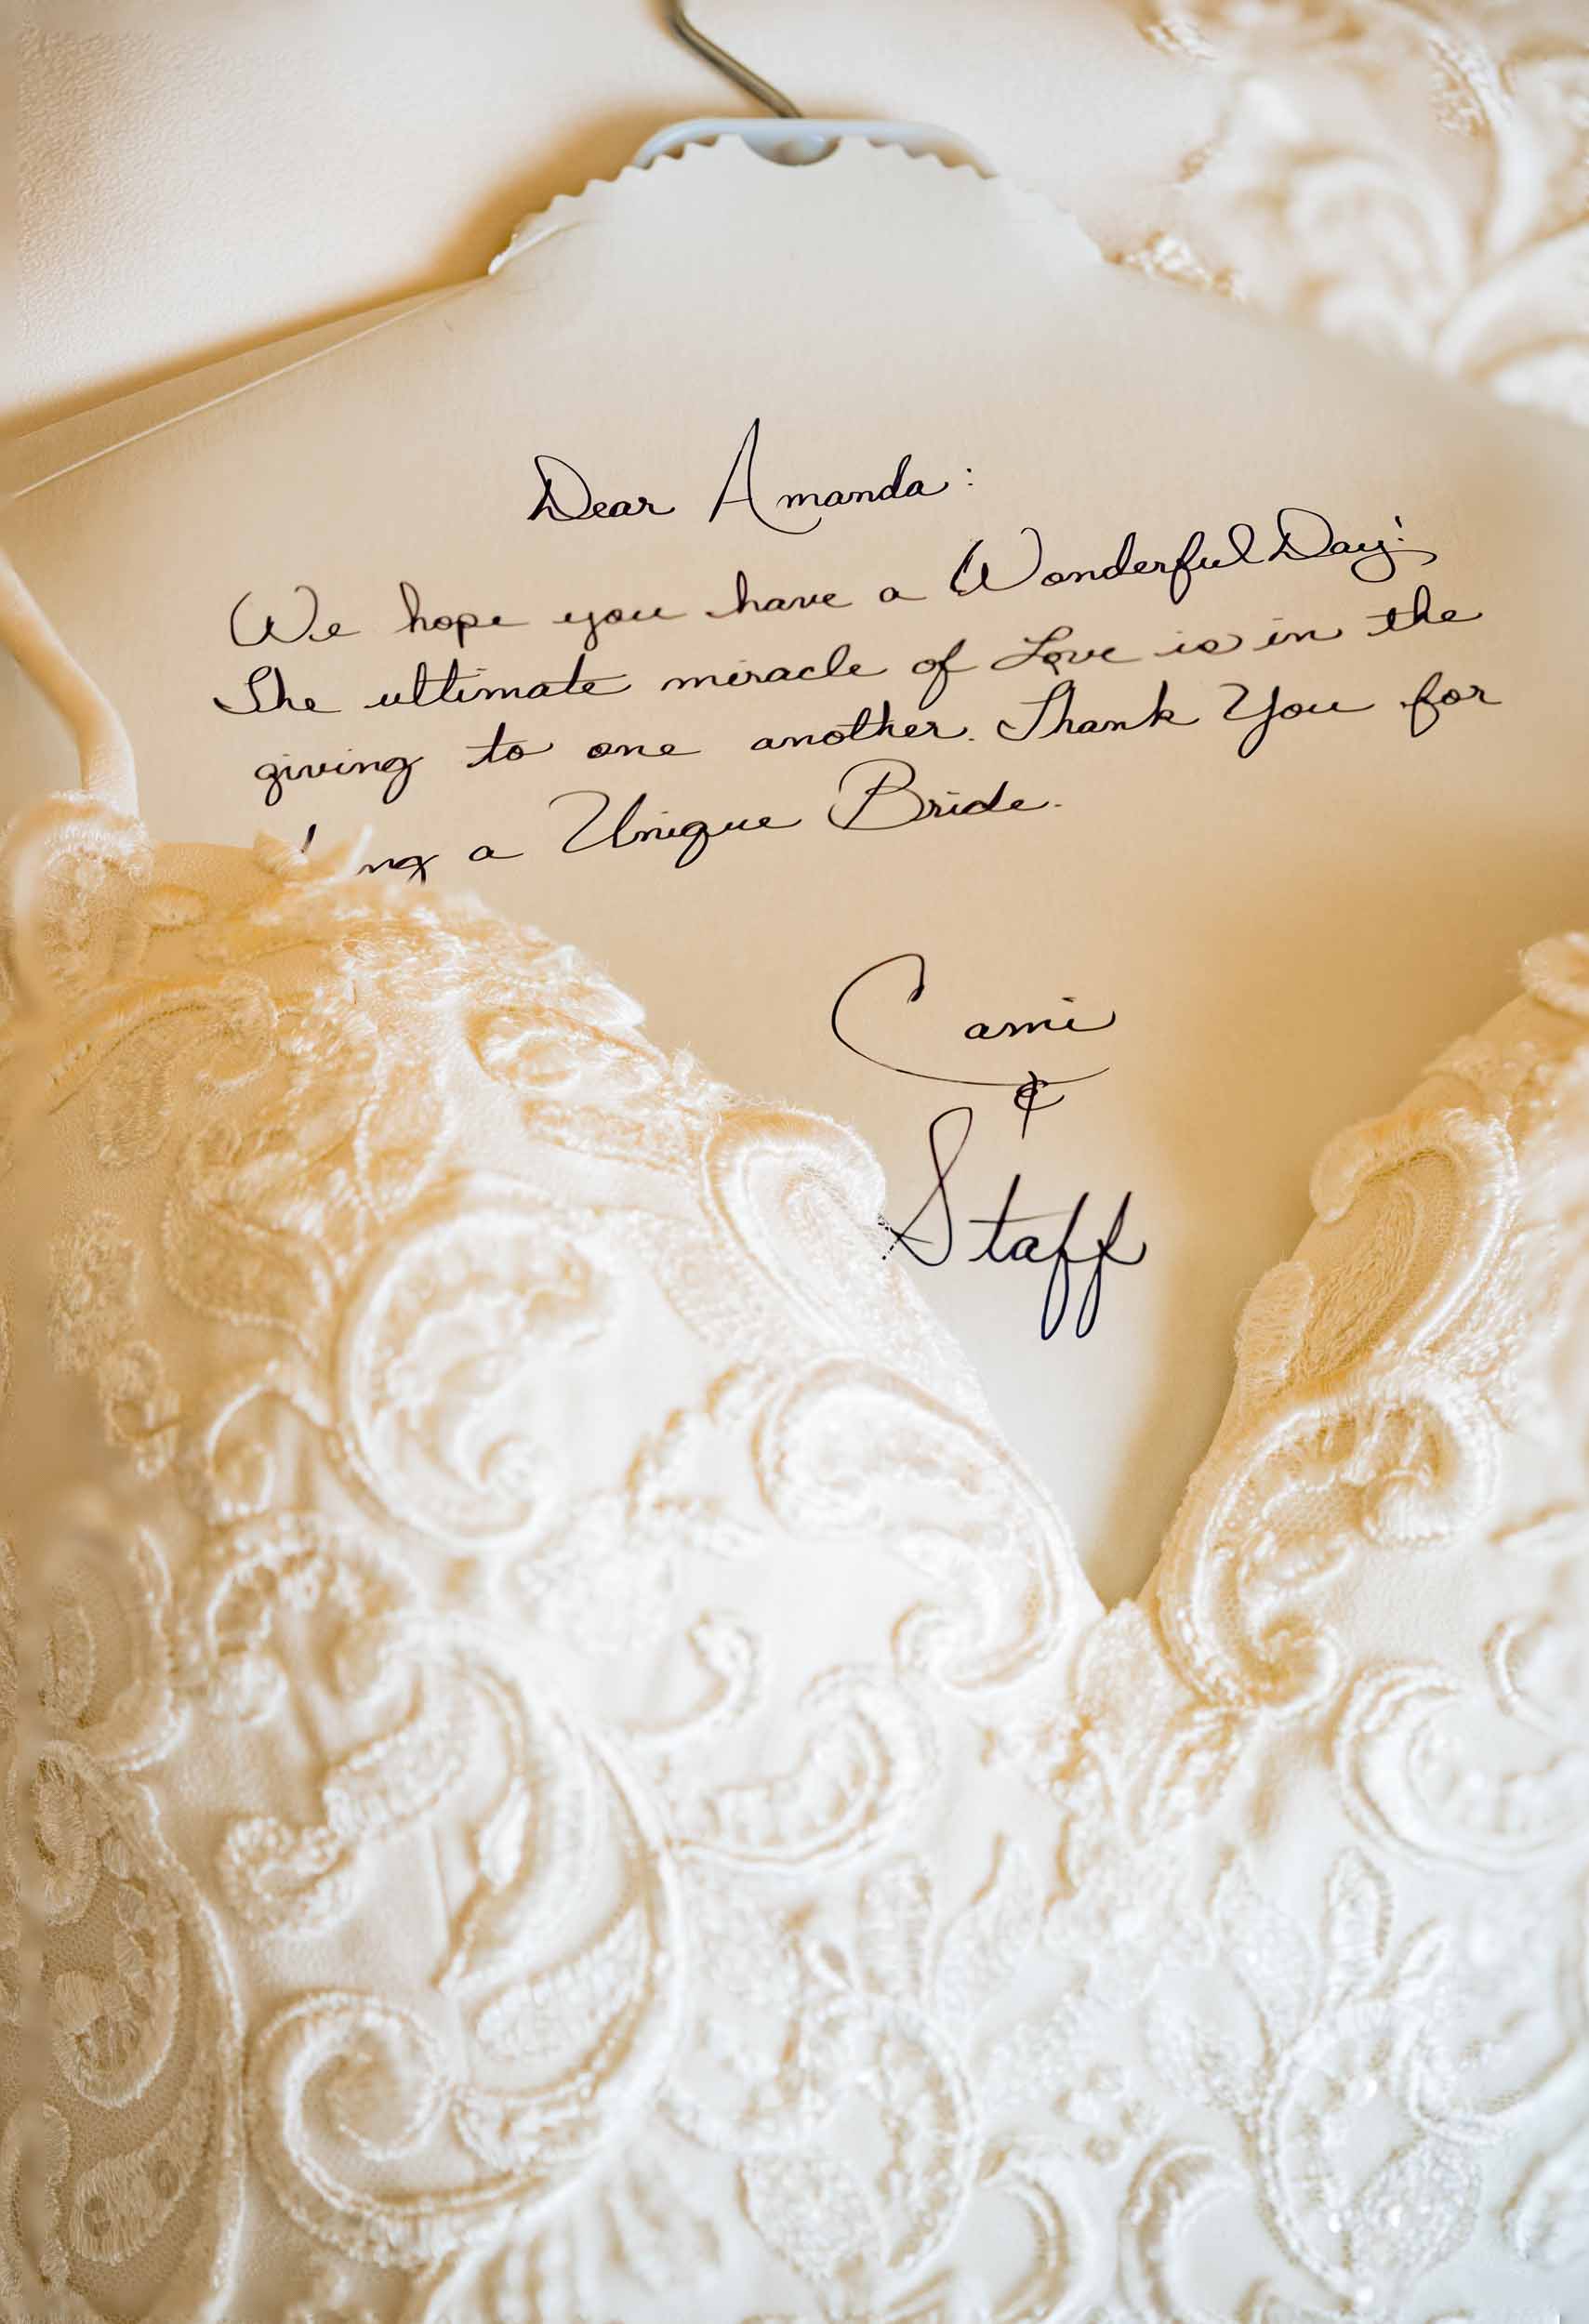 Dear Amanda:
We hope you have a Wonderful Day!
The ultimate miracle of Love is in the
giving to one another. Thank You for
a Unique Bride.
Cami
&
Staff